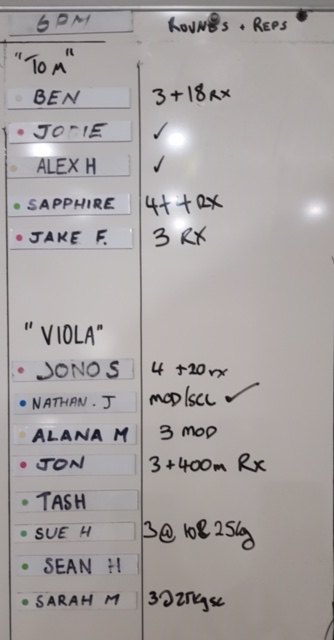 6PM ROUNDS + REPS
"TOM"
BEN 3+18 RX
JODIE ✓
ALEX H ✓
SAPPHIRE 4+ RX
JAKE F. 3 RX
"VIOLA"
JONO S 4 +20 rx
NATHAN. J MOD/SCL ✓
ALANA M 3 MOD
JON 3+400m Rx
TASH
SUE H 3@ 25kg
SEAN H
SARAH M 3 25kg sc